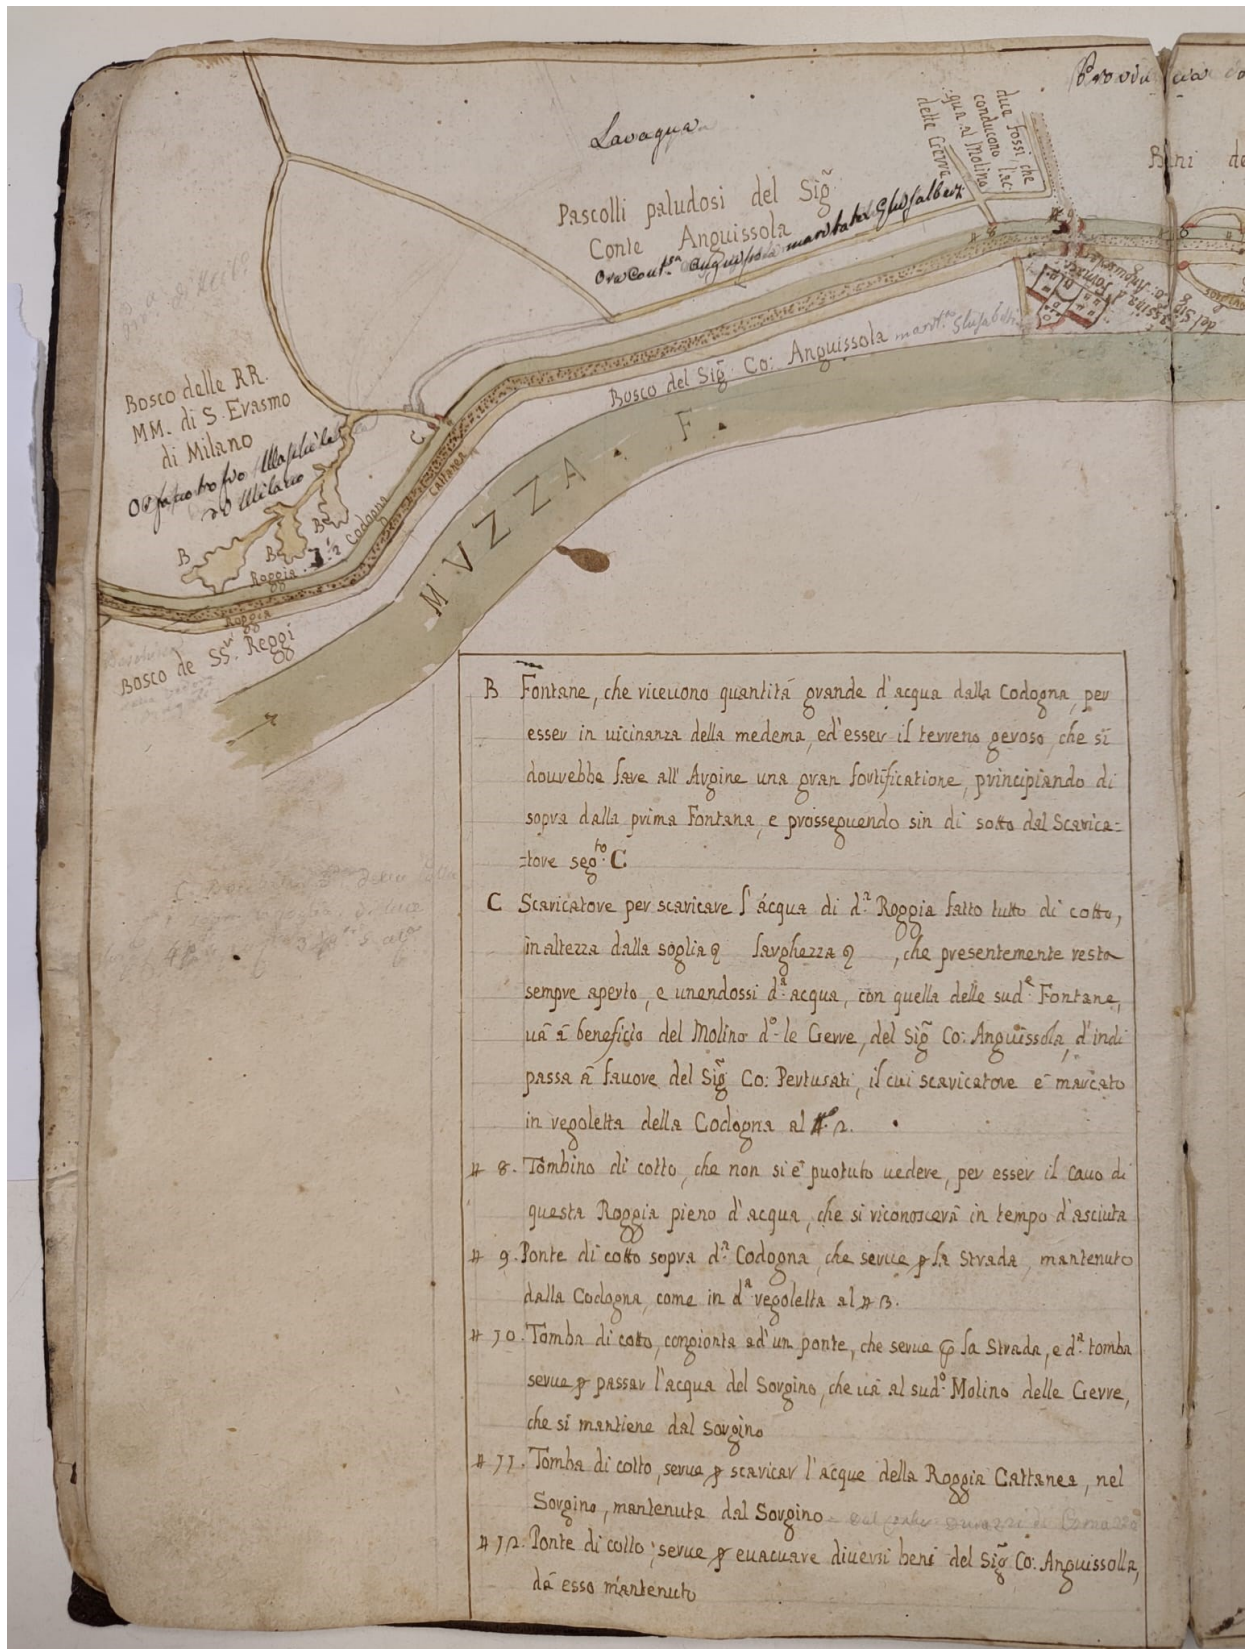 Lavagna
Provincia
Beni de
due Fossi, che
conducono l'ac
qua al Molino
delle Gerre
Pascolli paludosi del Sig.
Conte Anguissola
ora Cont.sa Anguissola maritata Ghisalberi
Bosco del Sig. Co: Anguissola marit.ta
Cassina d. Fornaxe
del Sig. Co: Anguissola
Bosco delle RR.
MM. di S. Evasmo
di Milano
di Milano
C
B
B
B
Roggia Codogna
Roggia Cattanea
Bosco de SS.ri Reggi
MVZZA. F.
B Fontane, che riceuono quantità grande d'acqua dalla Codogna, per
esser in uicinanza della medema, ed'esser il terreno geroso, che si
dourebbe fare all' Argine una gran fortificatione, principiando di
sopra dalla prima Fontana, e prosseguendo sin di sotto dal Scarica=
=tore seg.to C.
C Scaricatore per scaricare l'acqua di d.a Roggia fatto tutto di cotto,
in altezza dalla soglia q larghezza q , che presentemente resta
sempre aperto, e unendossi d.a acqua, con quella delle sud.e Fontane,
uà à beneficio del Molino d.o le Gerre, del Sig. Co: Anguissola, d'indi
passa à fauore del Sig. Co: Pertusati, il cui scaricatore è marcato
in regoletta della Codogna al #.o 2.
# 8. Tombino di cotto, che non si è puotuto uedere, per esser il cauo di
questa Roggia pieno d'acqua, che si riconoscerà in tempo d'asciuta
# 9. Ponte di cotto sopra d.a Codogna, che serue p la Strada, mantenuto
dalla Codogna, come in d.a regoletta al # 13.
# 10. Tomba di cotto, congionta ad'un ponte, che serue p la Strada, e d.a tomba
serue p passar l'acqua del Sorgino, che uà al sud.o Molino delle Gerre,
che si mantiene dal Sorgino
# 11. Tomba di cotto, serue p scaricar l'acque della Roggia Cattanea, nel
Sorgino, mantenuta dal Sorgino
# 12. Ponte di cotto, serue p euacuare diuersi beni del Sig. Co: Anguissolla,
dà esso mantenuto